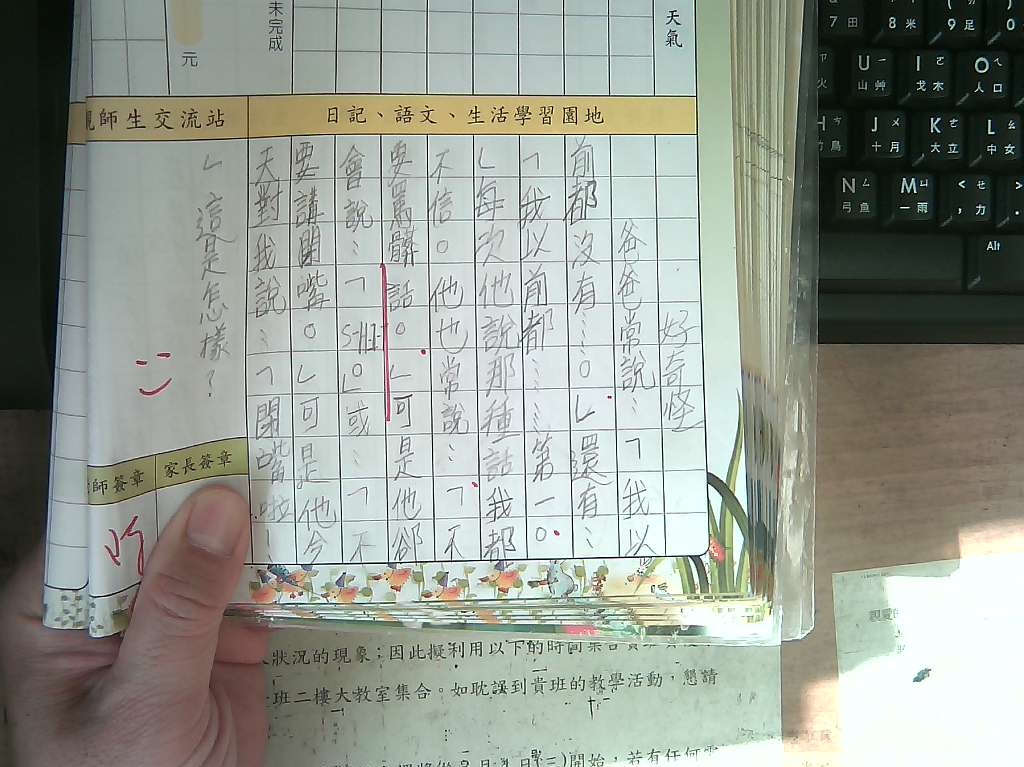 天氣
未完成
元
日記、語文、生活學習園地
親師生交流站
好奇怪
爸爸常說:「我以
前都沒有……。」還有:
「我以前都……第一。
」每次他說那種話我都
不信。他也常說:「不
要罵髒話。」可是他卻
會說:「SHIT。」或:「不
要講閉嘴。」可是他今
天對我說:「閉嘴啦!
」這是怎樣?
家長簽章
師簽章
狀況的現象;因此擬利用以下的時間集合貴班
班二樓大教室集合。如耽誤到貴班的教學活動,懇請
開始,若有任何
7 田
8 米
9 足
0
U 山
I 戈 木
O 人 口
J 十 月
K 大 立
L 中 女
N 弓 魚
M 一 雨
Alt